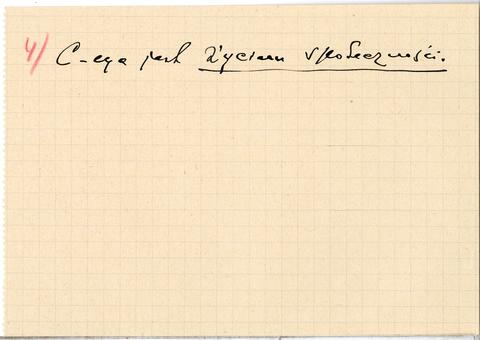 4/ C-cya jest życiem społeczności.